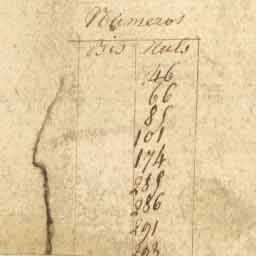 Numeros
Bis Nuls
46
66
85
101
174
288
286
291
293